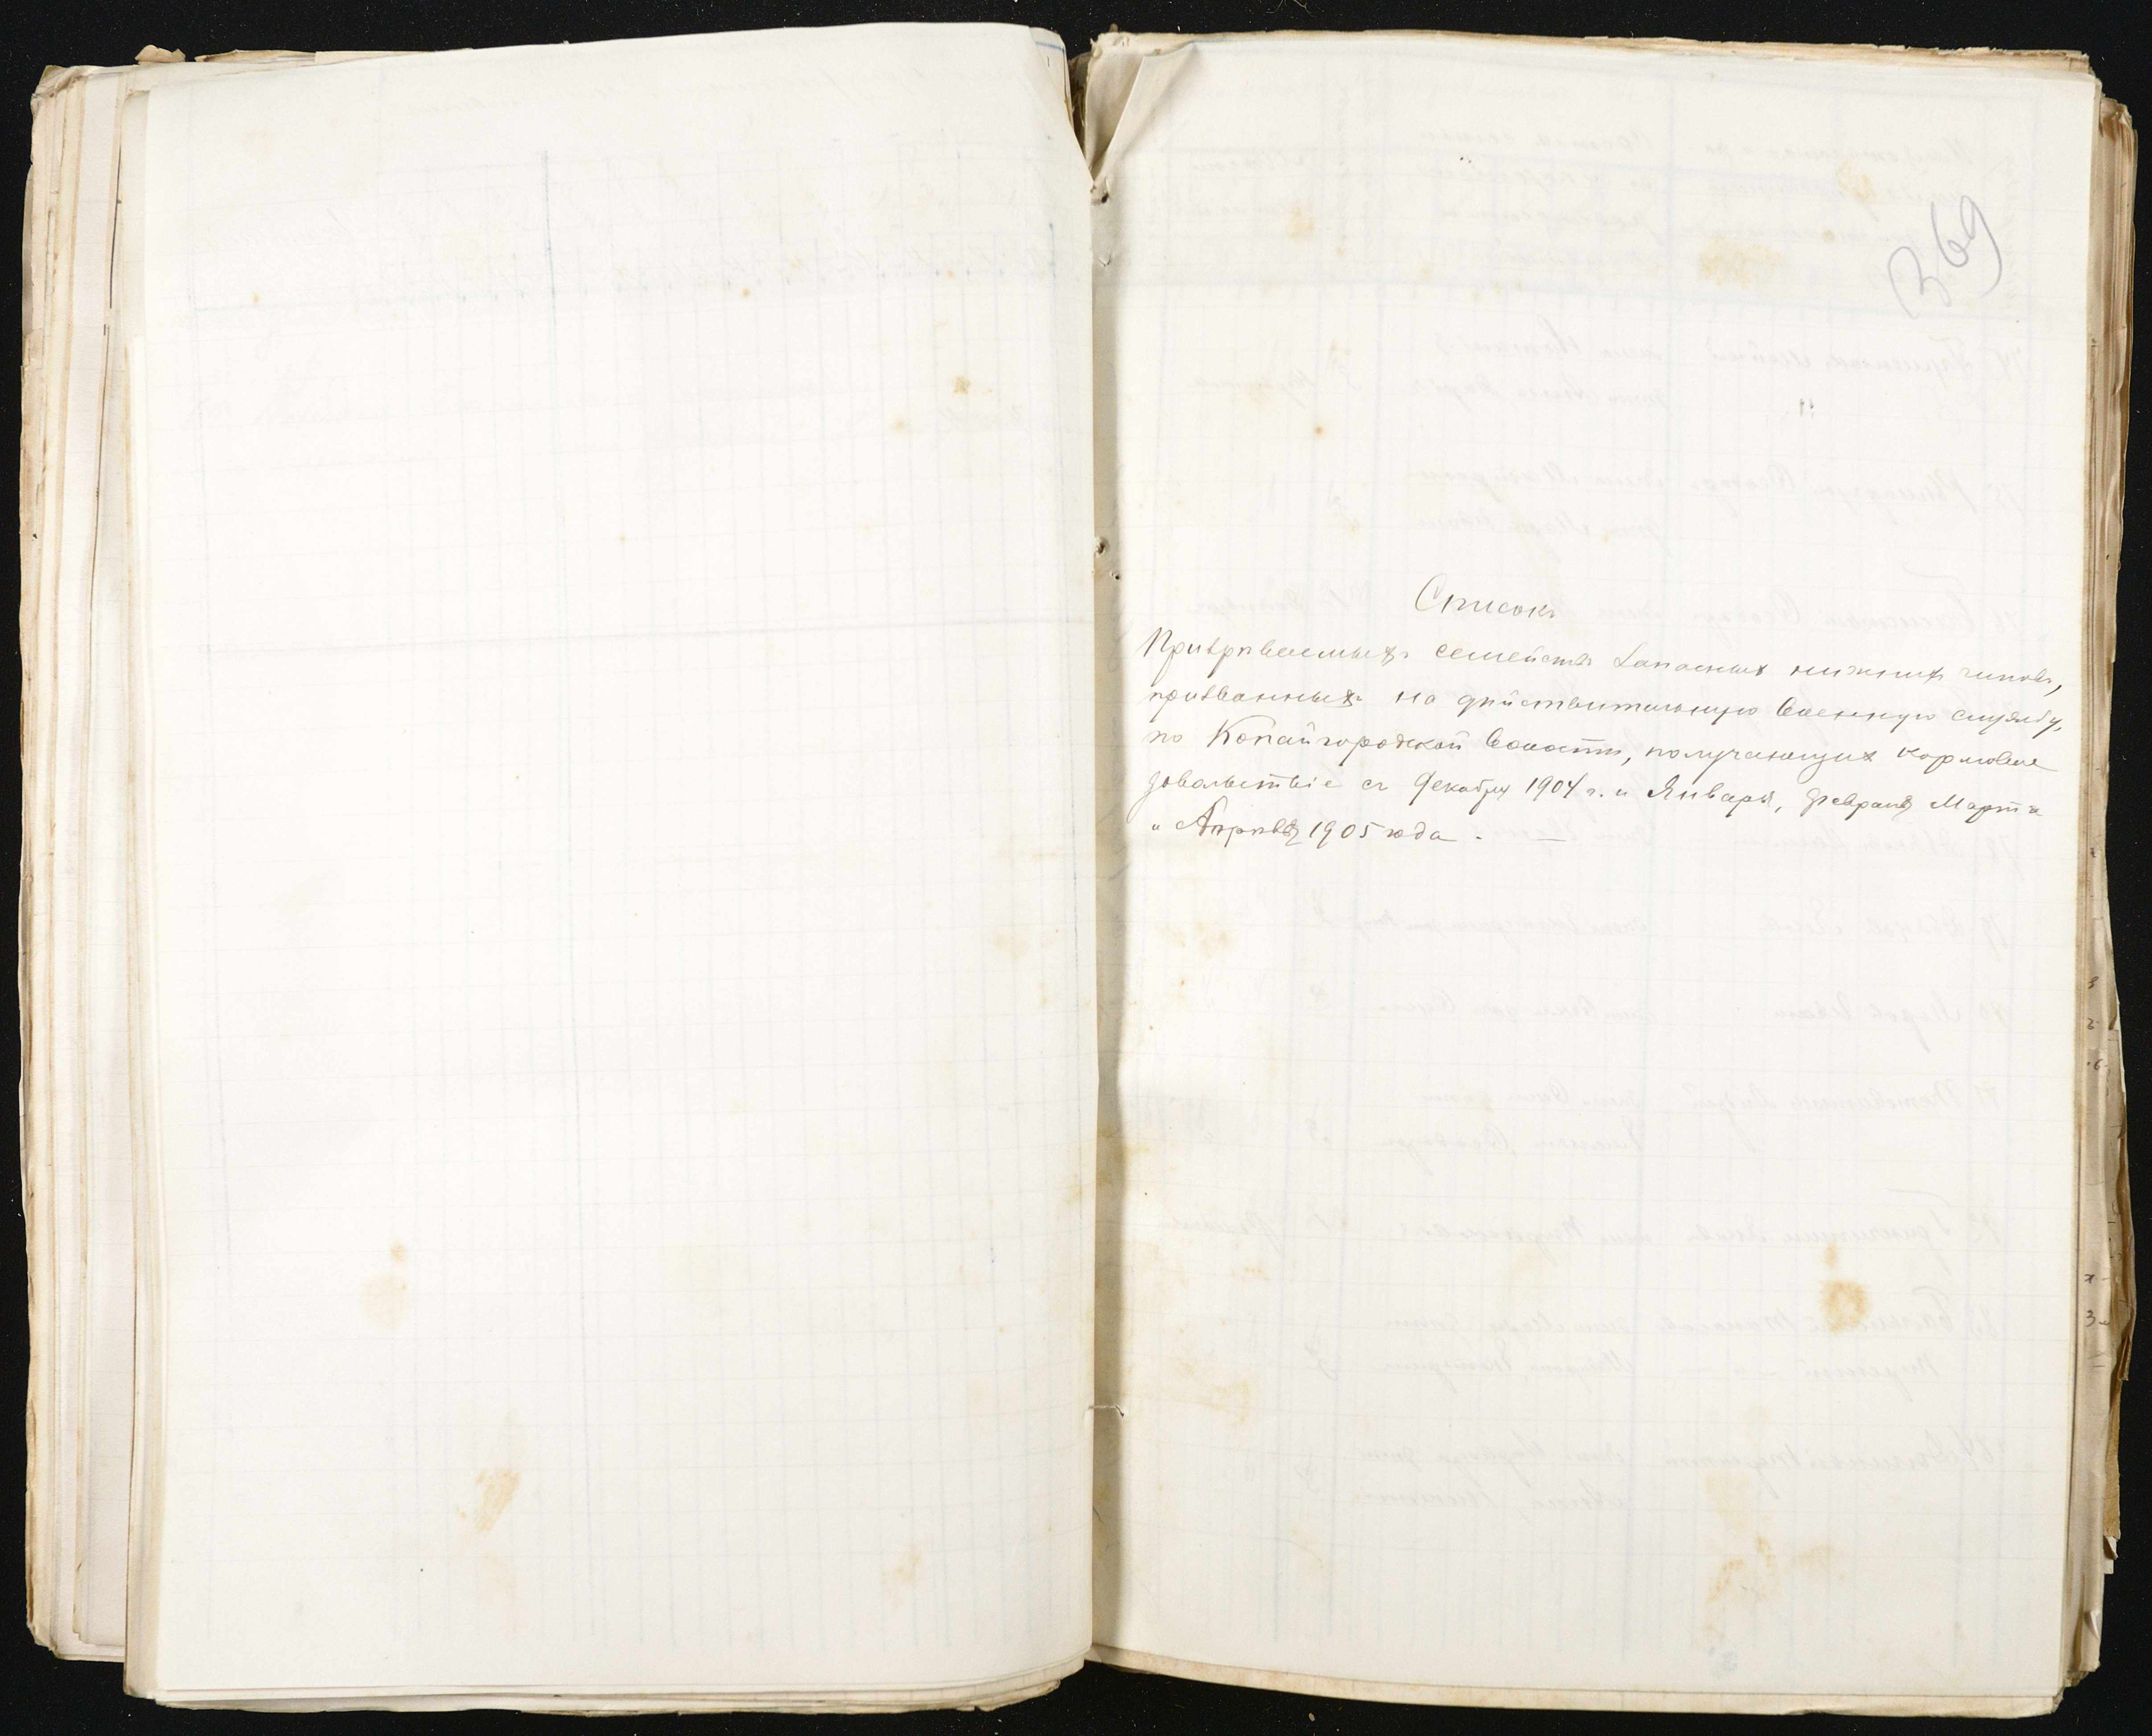 369
Списокъ
Призрѣваемыхъ семействъ запасныхъ нижнихъ чиновъ,
призванныхъ на дѣйствительную военную службу,
по Копайгородской волости, получающихъ кормовое
довольствіе съ Декабря 1904 г. и Января, Февраля Марта
и Апрѣля 1905 года. —